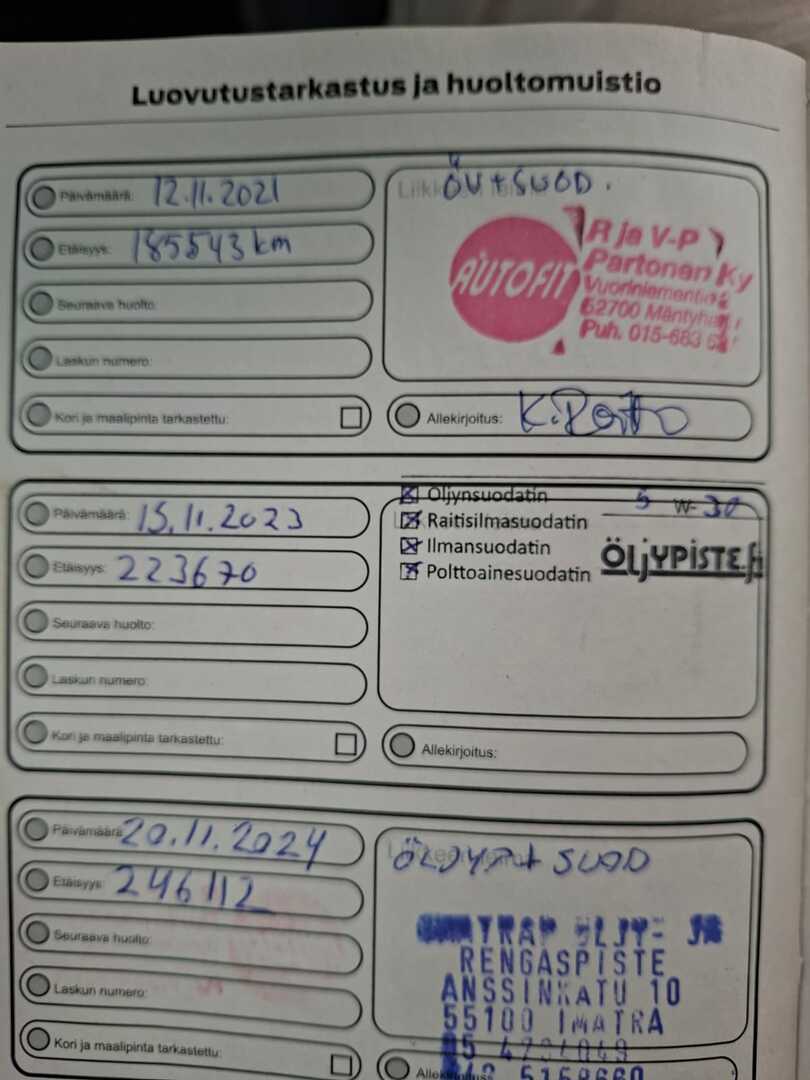 Luovutustarkastus ja huoltomuistio
Päivämäärä: 12.11.2021
Etäisyys: 185543 km
Seuraava huolto:
Laskun numero:
Kori ja maalipinta tarkastettu:
ÖV + SUOD.
AUTOFIT
R ja V-P
Partonen Ky
Vuoriniementie
52700 Mäntyharju
Puh. 015-683
Allekirjoitus:
Päivämäärä: 15.11.2023
Etäisyys: 223670
Seuraava huolto:
Laskun numero:
Kori ja maalipinta tarkastettu:
Öljynsuodatin 5 W- 30
Raitisilmasuodatin
Ilmansuodatin
Polttoainesuodatin
ÖLJYPISTE.fi
Allekirjoitus:
Päivämäärä: 20.11.2024
Etäisyys: 246112
Seuraava huolto:
Laskun numero:
Kori ja maalipinta tarkastettu:
SUOD
RENGASPISTE
ANSSINKATU 10
55100 IMATRA
Allekirjoitus: